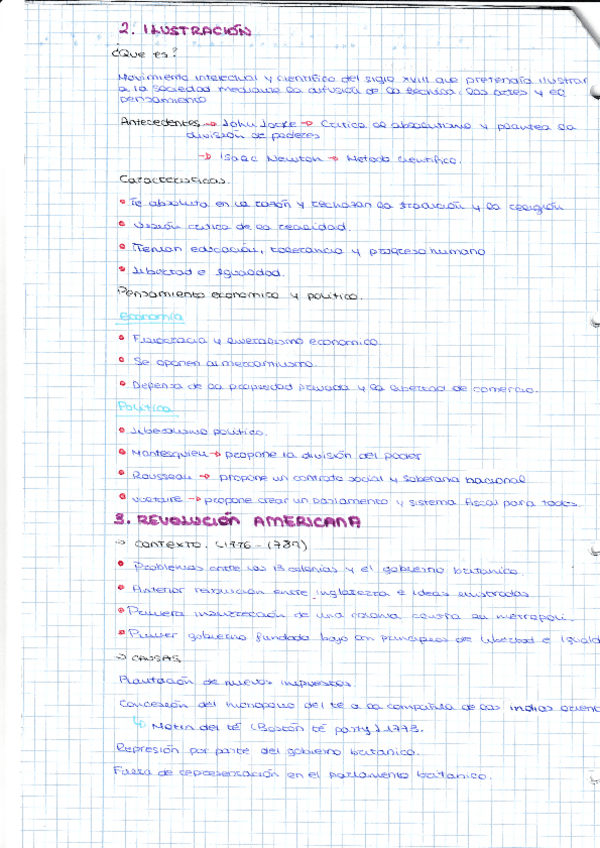 2. ILUSTRACIÓN
¿Que es?
Movimiento intelectual y científico del siglo XVIII que pretendía ilustrar
a la sociedad mediante la difusión de la técnica, las artes y el
pensamiento
Antecedentes → John Locke → Critica al absolutismo y plantea la
división de poderes
→ Isaac Newton → Metodo científico.
Características.
• Fe absoluta en la razón y rechazan la tradición y la religión
• Visión critica de la realidad.
• Tenian educación, tolerancia y progreso humano
• Libertad e igualdad.
Pensamiento economico y politico.
Economía
• Fisiocracia y liberalismo economico.
• Se oponen al mercantilismo.
• Defensa de la propiedad privada y la libertad de comercio.
Política
• Liberalismo politico.
• Montesquieu → propone la división del poder
• Rousseau → propone un contrato social y soberania nacional
• Voltaire → propone crear un parlamento y sistema fiscal para todos.
3. REVOLUCIÓN AMERICANA
→ CONTEXTO. (1776 - 1787)
• Problemas entre las 13 colonias y el gobierno britanico.
• Anterior revolución entre inglaterra e ideas ilustradas
• Primera insurrección de una colonia contra su metropoli.
• Primer gobierno fundado bajo con principios de libertad e iguald
→ CAUSAS
Plantación de nuevos impuestos.
Concesión del monopolio del té a la compañía de las indias orient
↳ Motin del té (Boston té party) 1773.
Represión por parte del gobierno britanico.
Falta de representación en el parlamento britanico.